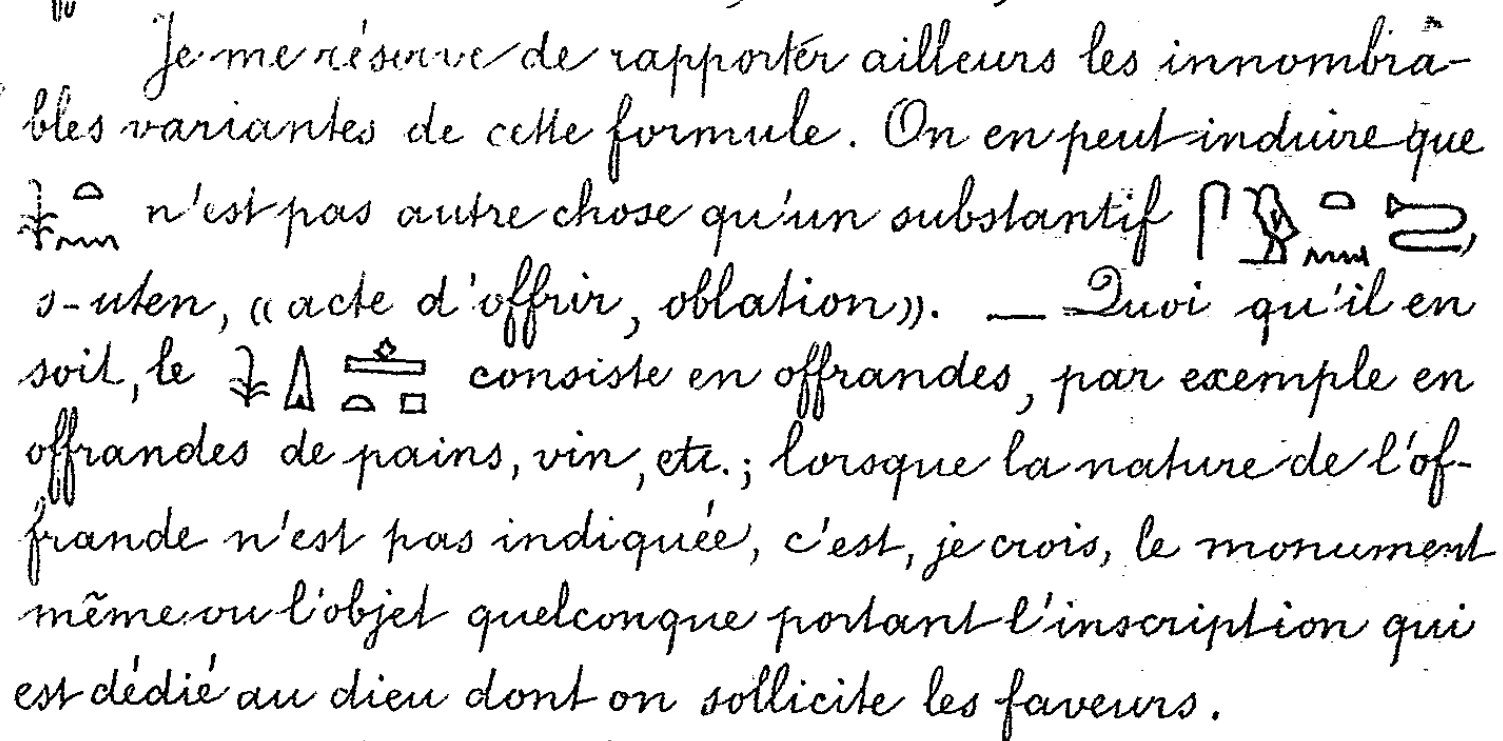 Je me réserve de rapporter ailleurs les innombra-
bles variantes de cette formule. On en peut induire que
𓇓𓏏𓈖 n'est pas autre chose qu'un substantif 𓋴𓅱𓏏𓈖
s-uten, « acte d'offrir, oblation ». — Quoi qu'il en
soit, le 𓇓𓏙𓊵𓏏𓊪 consiste en offrandes, par exemple en
offrandes de pains, vin, etc.; lorsque la nature de l'of-
frande n'est pas indiquée, c'est, je crois, le monument
même ou l'objet quelconque portant l'inscription qui
est dédié au dieu dont on sollicite les faveurs.